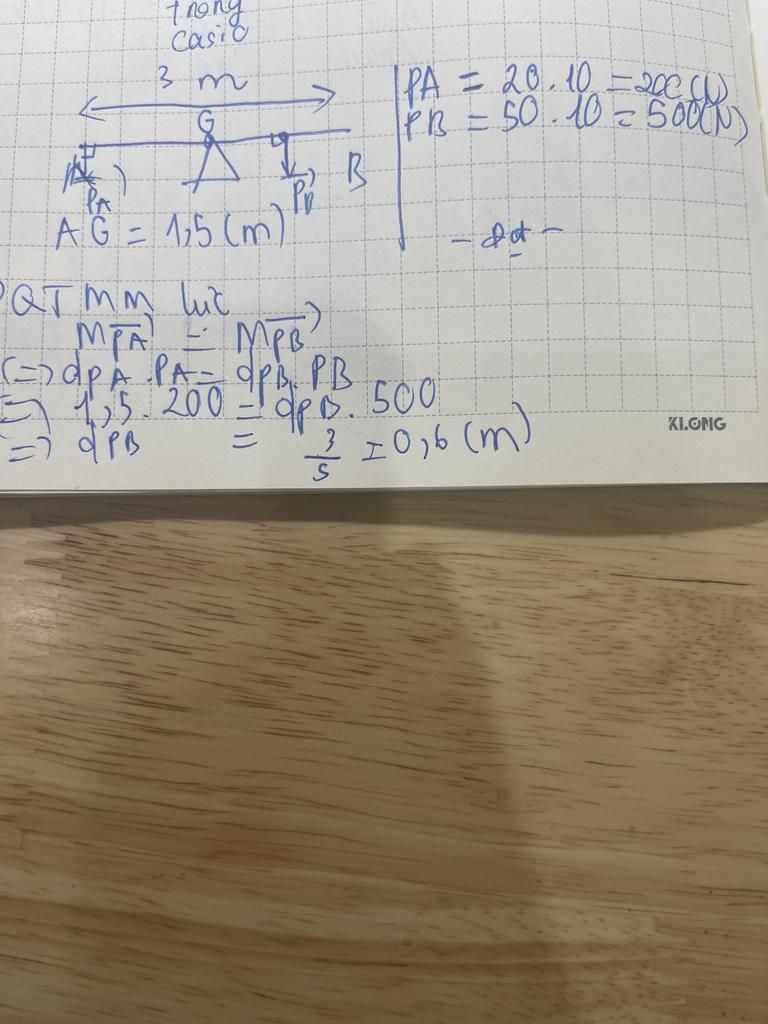 trong
casio
3 m
G
PA
PB
B
AG = 1,5 (m)
PA = 20.10 = 200(N)
PB = 50.10 = 500(N)
QT MM lực
MPA = MPB
<=> dPA.PA = dPB.PB
=> 1,5.200 = dPB.500
=> dPB = 3/5 = 0,6 (m)
KLONG